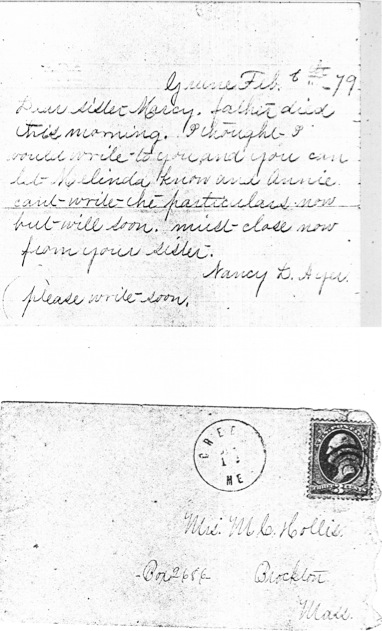 Greene Feb. 6th - 79
Dear sister Marcy. father died
this morning. I thought I
would write to you and you can
let Melinda know and Annie
cant write the particulars now
but will soon. must close now
from your sister.
Nancy D. Ayer.
please write soon.
GREE
ME
Mrs. M. C. Hollis.
Box 2656 Brockton
Mass.